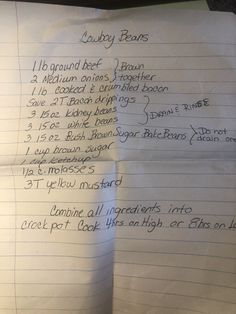 Cowboy Beans
1 lb ground beef } Brown
2 Medium onions } together
1 lb cooked & crumbled bacon
Save 2T Bacon drippings
3 15oz kidney beans } DRAIN & RINSE
3 15oz white beans
3 15oz Bush Brown Sugar Bake Beans } Do not drain
1 cup brown sugar
1 cup ketchup
1/2 c. molasses
3T yellow mustard
Combine all ingredients into
crockpot Cook 4hrs on High or 8hrs on